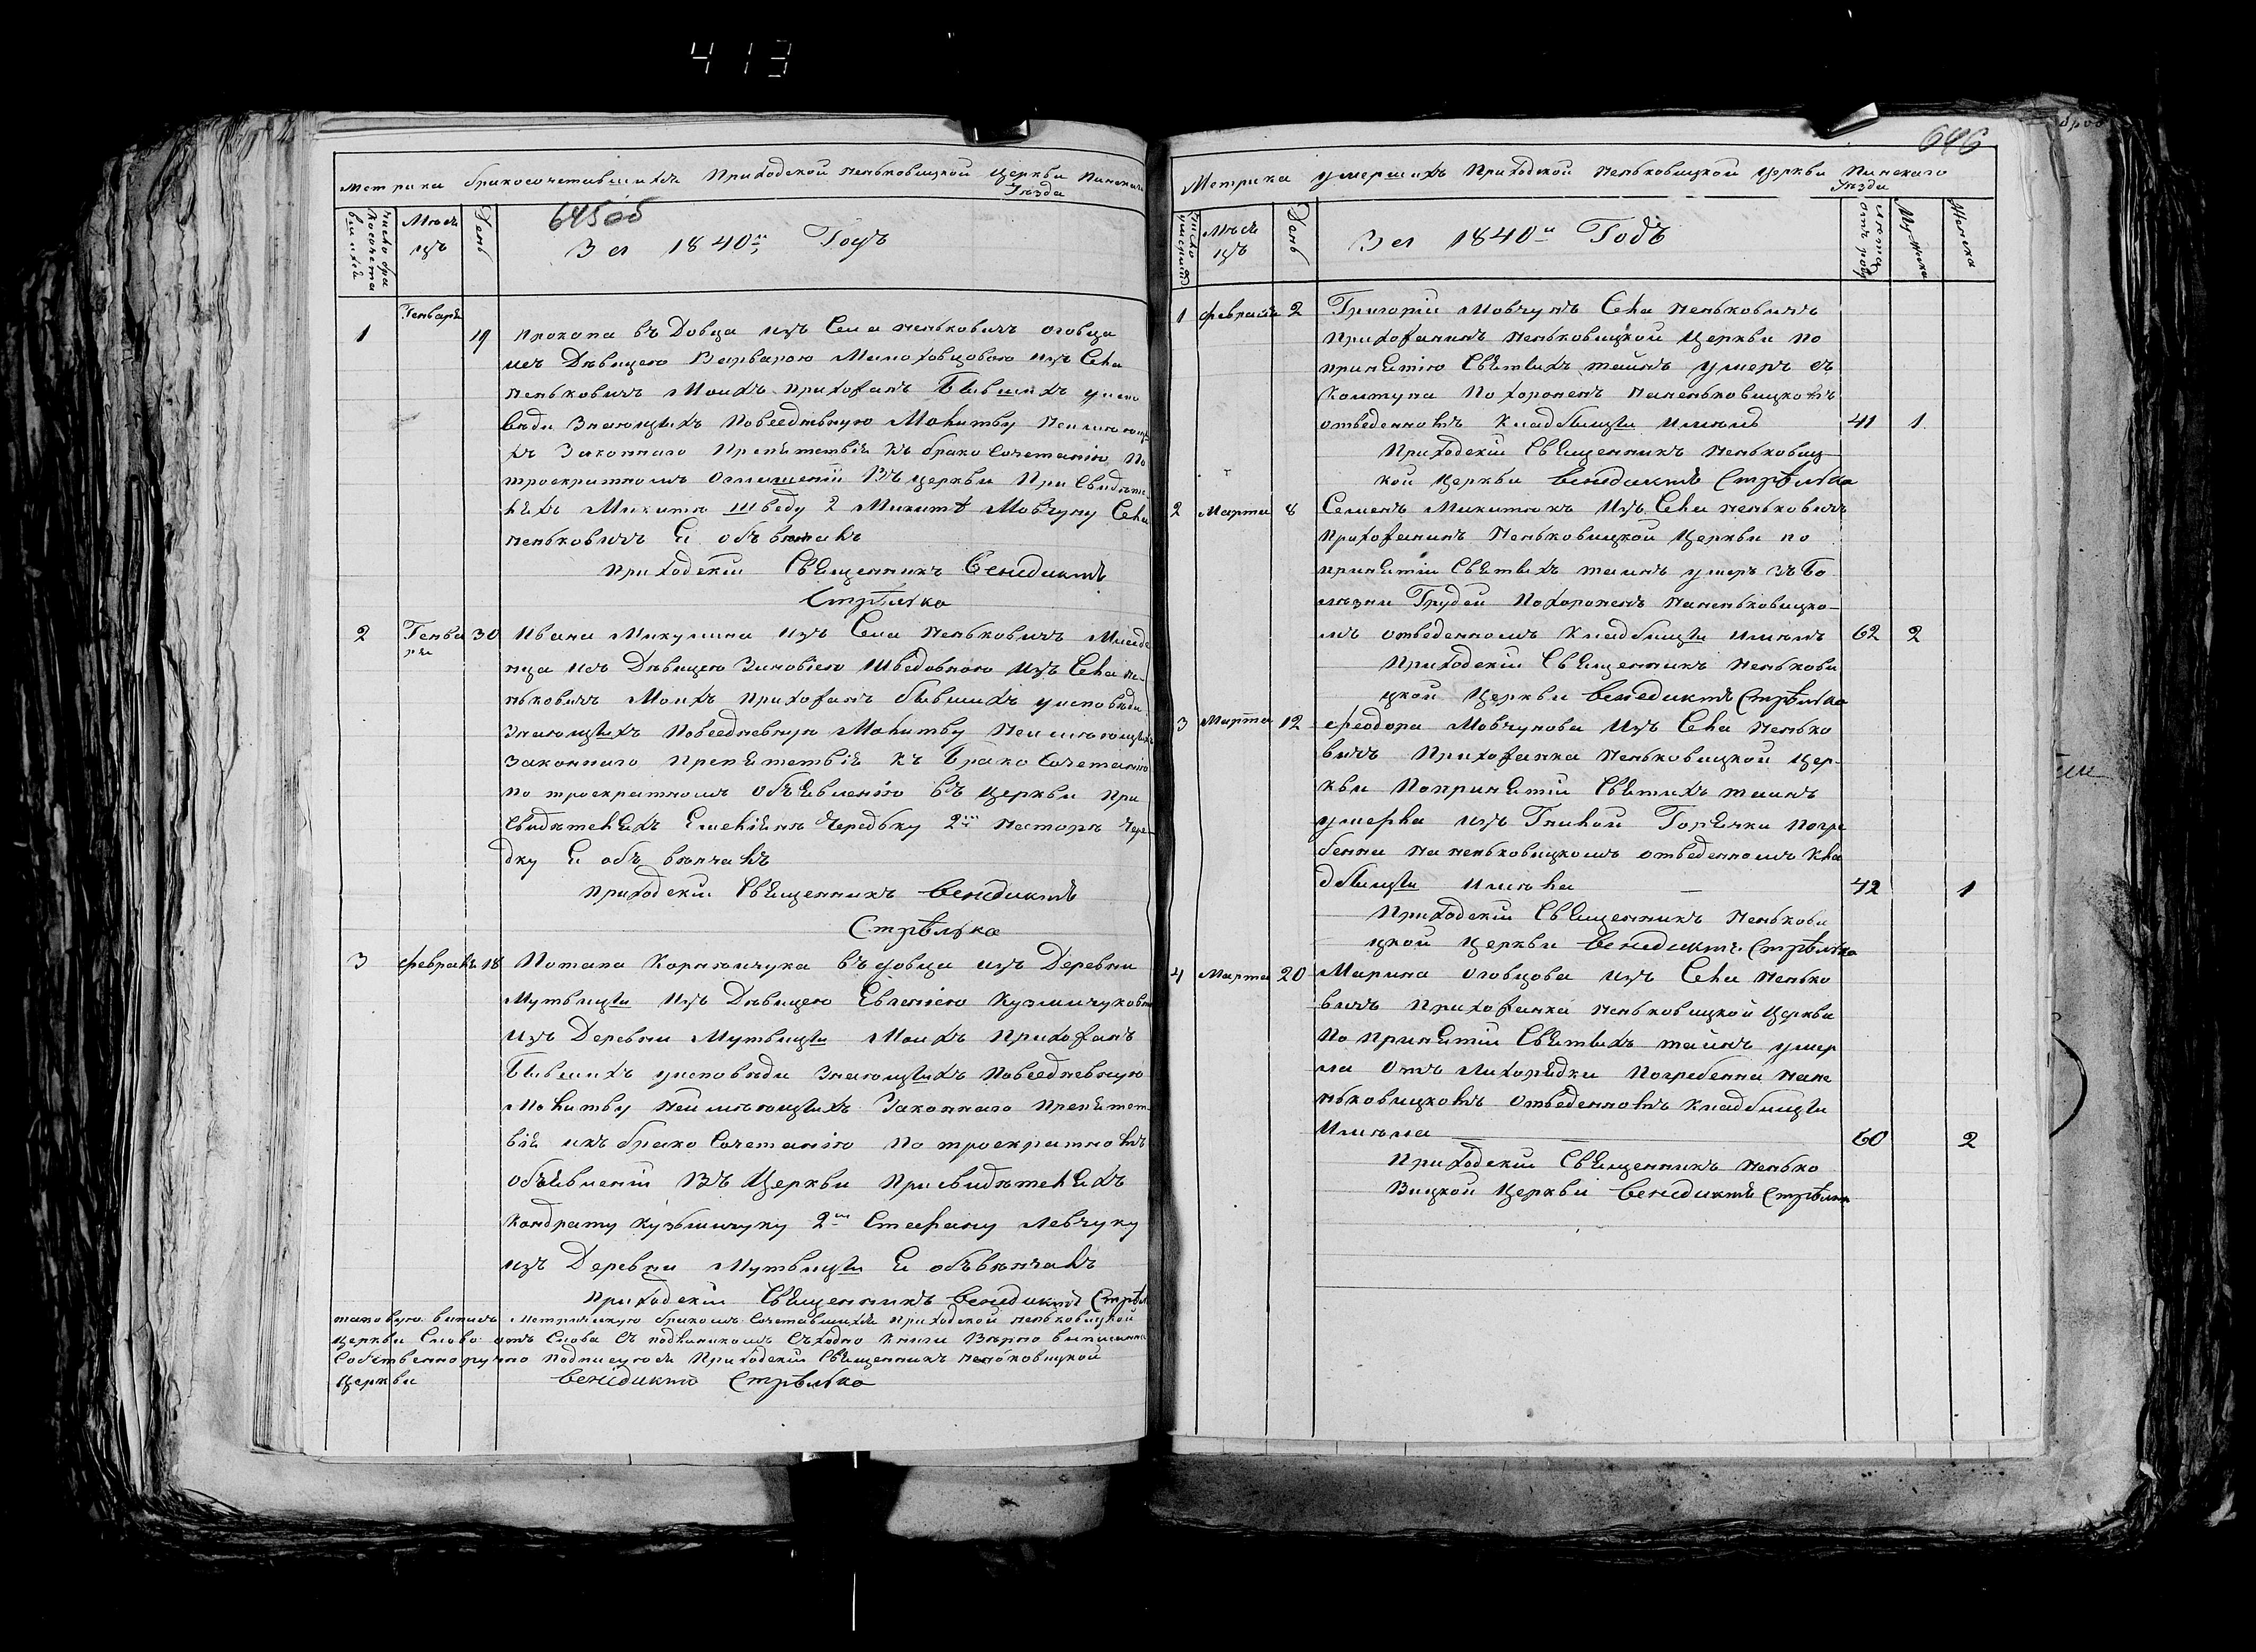 413
Метрика бракосочетавшихъ Приходской Невьковицкой Церкви Пинскаго
Уѣзда
число бра
косочета
вшихся
Мѣся
цъ
День
645об
За 1840й Годъ
Генварь
1 19 Прокопа въ Довца изъ Села Неньковичъ Оговца
изъ Дѣвицею Варварою Малоховцовою изъ Села
Неньковичъ Моихъ прихожанъ Бывшихъ уиспо
вѣди Знающихъ Повседневную Молитву Неимеющи
хъ Законнаго Препятствія къ бракосочетанію По
троекратномъ Оглашеніи Въ церкви При Свидѣте
ляхъ Микитѣ Шведу 2 Микитѣ Мовчуну Села
Неньковичъ я объ вѣнчалъ
Приходскій Священникъ Венидиктъ
Стрѣлка
2 Генва 30 Ивана Микулича изъ Села Неньковичъ Младе
ря
нца изъ Дѣвицею Зиновіею Шведовною изъ Села Не
ньковичъ Моихъ прихожанъ бывшихъ уисповѣди
Знающихъ Повседневную Молитву Неимеющихъ
Законнаго Препятствія къ Бракосочетанію
По троекратномъ объявленію въ Церкви При
Свидѣтеляхъ Емеліянѣ Чередьку 2й Несторѣ Чере
дку я объ вѣнчалъ
Приходскій Священникъ Венидиктъ
Стрѣлка
3 февраль 18 Потапа Корнѣйчука въ довца изъ Деревни
Мутвици изъ Дѣвицею Евгеніею Кузмичуковною
изъ Деревни Мутвици Моихъ Прихожанъ
Бывшихъ уисповѣди Знающихъ Повседневную
Молитву Неимеющихъ Законнаго Препятст
вія икъ бракосочетанію По троекратномъ
объявленіи Въ Церкви При свидѣтеляхъ
Кондрату Кузьмичуку 2й Стефану Левчуку
изъ Деревни Мутвици я объвѣнчалъ
Приходскій Священникъ Венидиктъ Стрѣлка
таковую выпись метрическую бракомъ Сочетавшихся Приходской Неньковицкой
Церкви Слово отъ Слова Съ подлинникомъ Съходно книги Вѣрно выписанна
Собственноручно Подписуюся Приходскій Священникъ Неньковицкой
Церкви Венидиктъ Стрѣлка
646
Метрика умершихъ Приходской Неньковицкой Церкви Пинскаго
Уѣзда
число
умершихъ
Мѣся
цъ
День
За 1840й Годъ
лѣта
отъ роду
Мужска
Женска
1 февраль 2 Григорій Мовчунъ Села Неньковичъ
Прихожанинъ Неньковицкой Церкви по
принятію Святыхъ тайнъ умеръ съ
Колтуна Похороненъ Наненьковицкомъ
отведенномъ Кладбищи имѣлъ 41 1
Приходскій Священникъ Неньковиц
кой Церкви Венидиктъ Стрѣлка
2 Марта 8 Семенъ Микитюкъ Изъ Села Неньковичъ
Прихожанинъ Неньковицкой Церкви по
принятіи Святыхъ таинъ умеръ зъ Бо
лѣзни Грудей Похороненъ Наненьковицко
мъ отведенномъ Кладбищи имѣлъ 62 2
Приходскій Священникъ Ненькови
цкой Церкви Венедиктъ Стрѣлка
3 Марта 12 Феодора Мовчунова Изъ Села Ненько
вичъ Прихожанка Неньковицкой Цер
кви Попринятіи Святыхъ таинъ
умерла изъ Гнилой Горячки Погре
бенна Наненьковицкомъ отведенномъ Кла
дбищи имѣла 42 1
Приходскій Священникъ Ненькови
цкой Церкви Венидиктъ Стрѣлка
4 Марта 20 Марина Оговцова Изъ Села Ненько
вичъ Прихожанка Неньковицкой Церкви
По принятіи Святыхъ тайнъ умер
ла Отъ Лихорадки Погребенна Нане
ньковицкомъ Отведенномъ Кладбищи
Имѣла 60 2
Приходскій Священникъ Ненько
вицкой Церкви Венидиктъ Стрѣлка